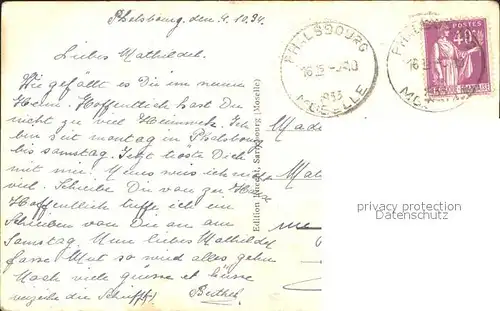 Phalsbourg, den 4.10.34.
Liebes Mathildel.
Wie gefällt es Die im neuen
Heim. Hoffentlich hast Du
nicht zu viel Heimweh. Ich
ben seit montag in Phalsbourg
bis samstag. Jetzt Dich
mit mir. muss mich
viel. Schreibe Die von zu
Hoffentlich treffe ich ein
Schreiben von Die an am
Samstag. Nun liebes Mathildel
fasse Mut so wird alles gehn
Noch viele grüsse et
verzeihe die Schrift
Berthel
Edition Sarrebourg (Moselle)
PHALSBOURG
16 15
MOSELLE
PHALSBOURG
MOSELLE
POSTES
40c
Made
Mat
me
Persönliche
Datenschutz